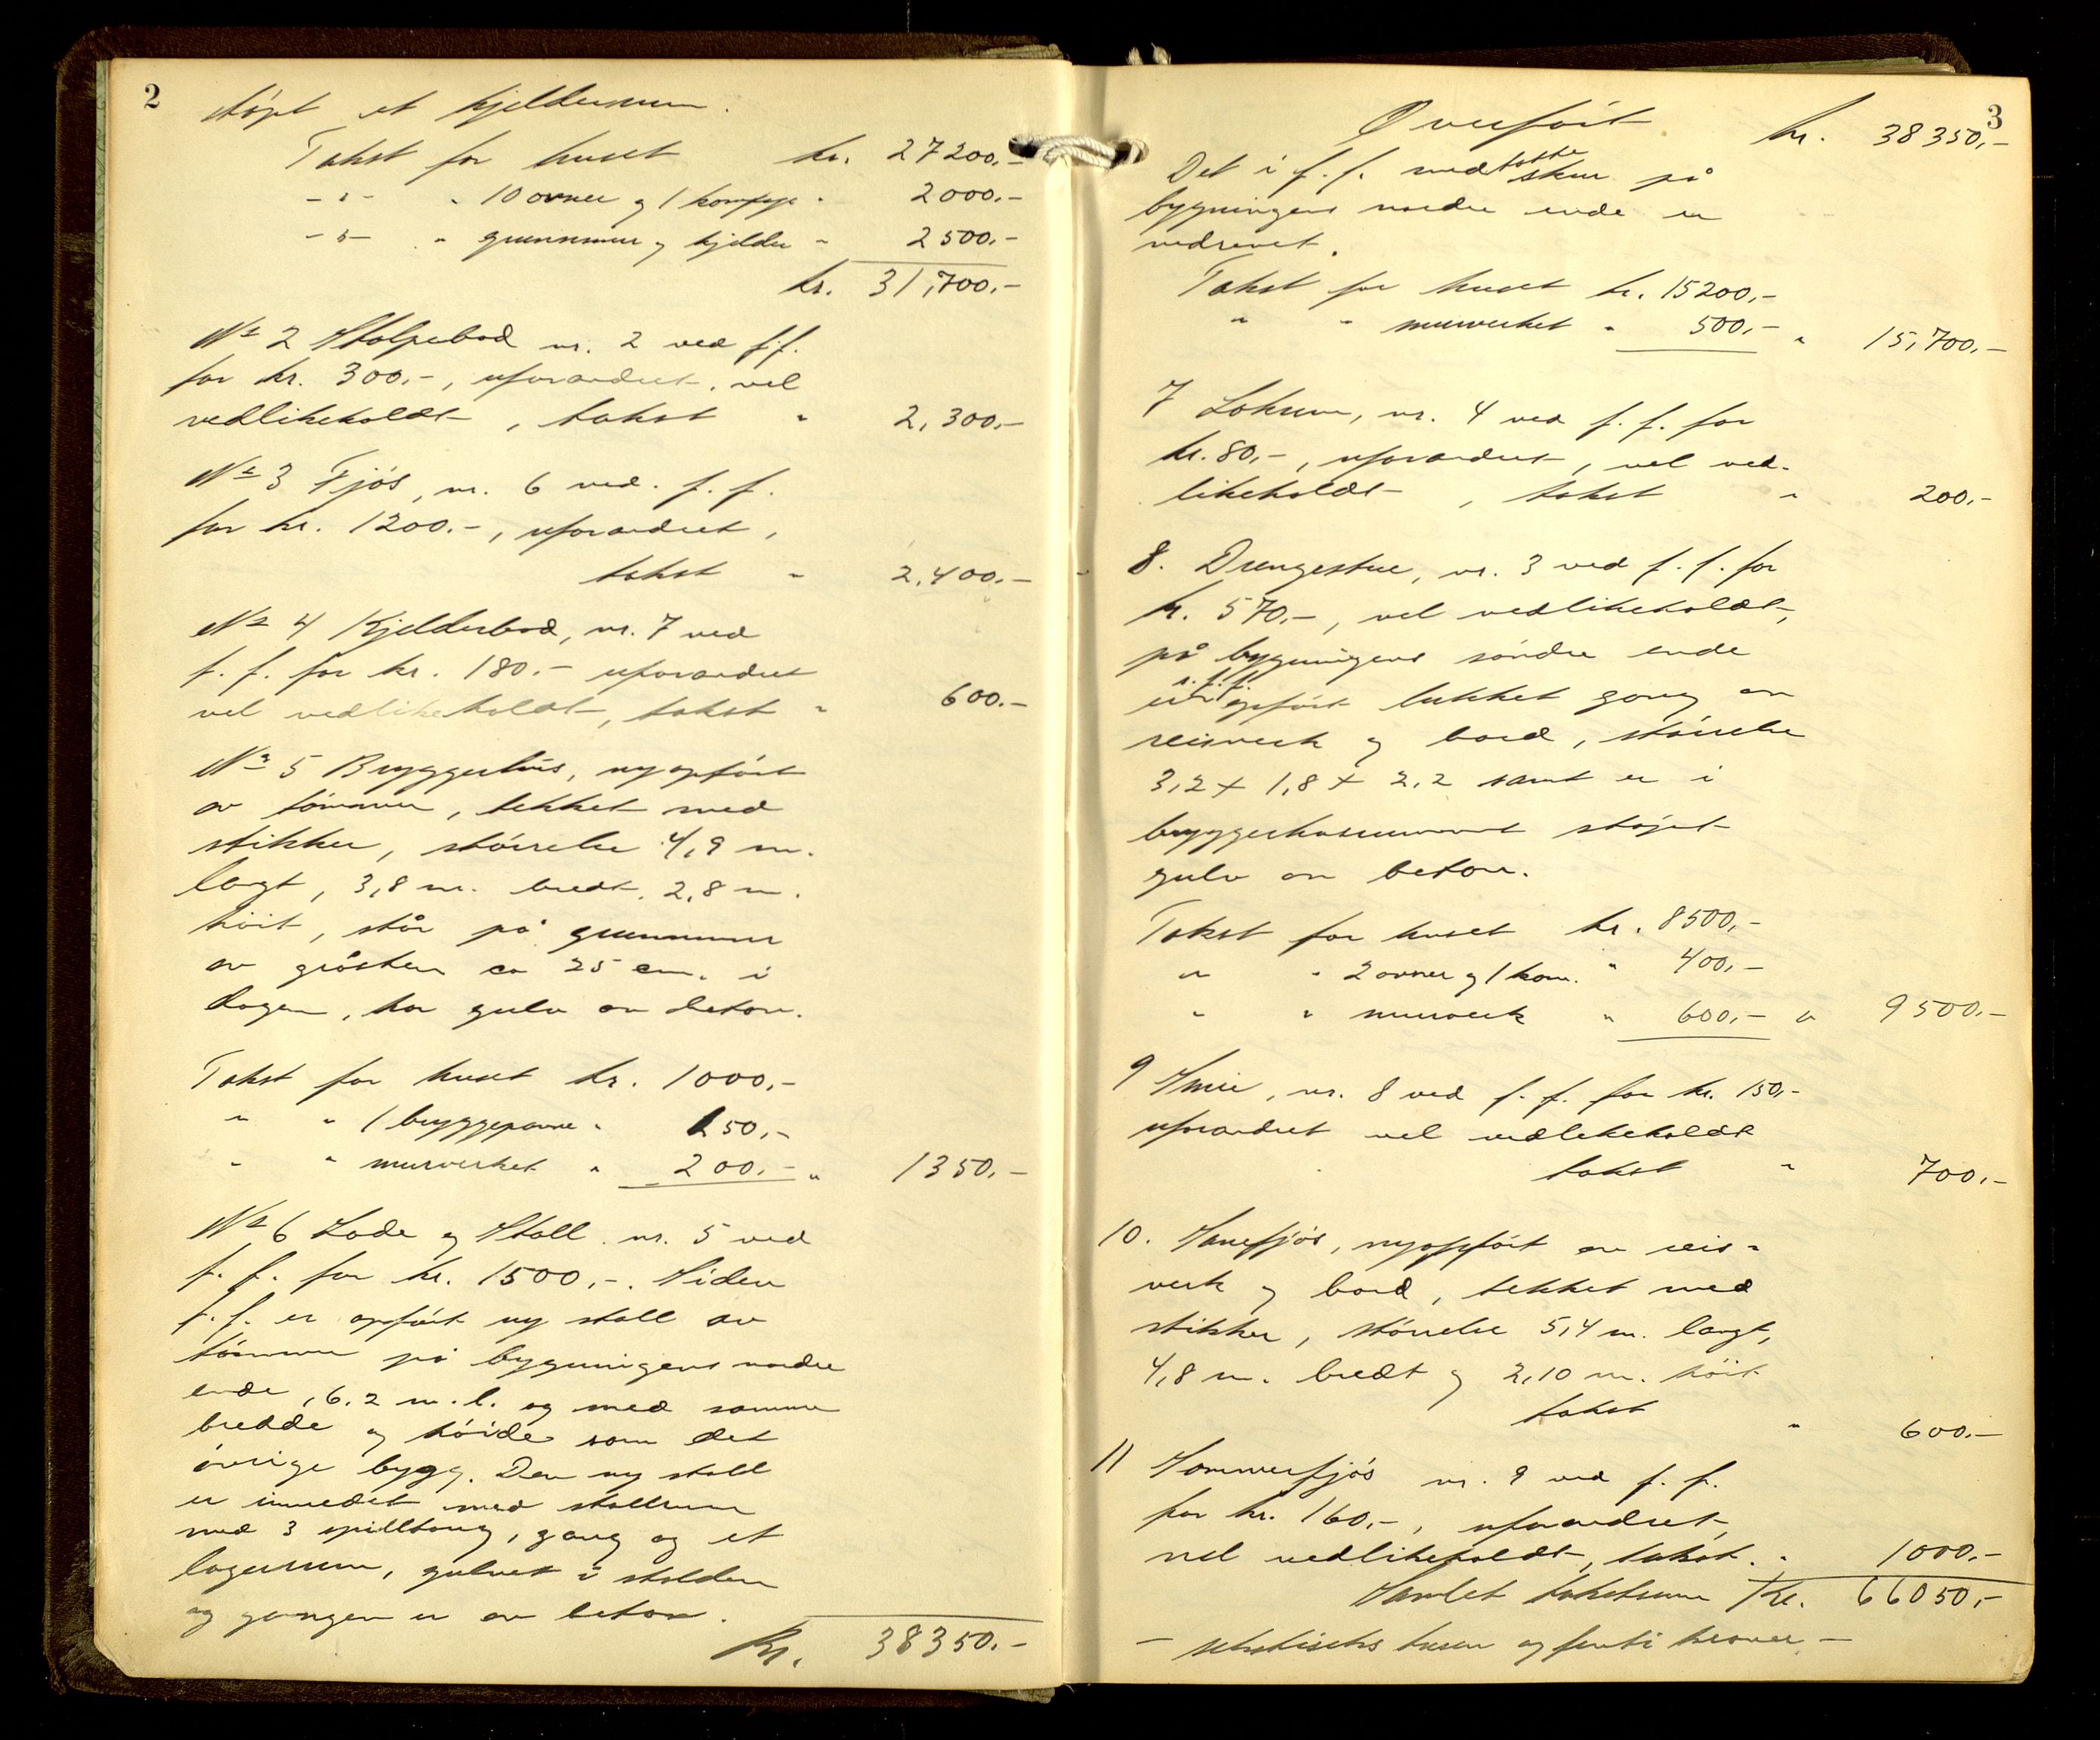 2
støpt et kjellerrum.
Takst for huset kr. 27200.-
-"- " 10 ovner og 1 komfyr " 2000.-
-"- " grunnmur og kjelder " 2500.-
kr. 31,700.-
No 2 Stolpebod nr. 2 ved f.f.
for kr. 300.-, uforandret, vel
vedlikeholdt, takst " 2,300.-
No 3 Fjøs, nr. 6 ved. f. f.
for kr. 1200.-, uforandret,
takst " 2,400.-
No 4 Kjelderbod, nr. 7 ved
f. f. for kr. 180.- uforandret
vel vedlikeholdt, takst " 600.-
No 5 Bryggerhus, nyopført
av tømmer, tekket med
stikker, størrelse 4,9 m.
langt, 3,8 m. bredt, 2,8 m.
høit, står på grunnmur
av gråsten ca 25 cm. i
dagen, har gulv av beton.
Takst for huset kr. 1000,-
" " 1 bryggepanne " 150,-
" " murverket " 200.- " 1350.-
No 6 Lade og Stall nr. 5 ved
f. f. for kr. 1500,-. Siden
f. f. er opført ny stall av
tømmer på bygningens nordre
ende, 6.2 m. l. og med samme
bredde og høide som det
øvrige bygg. Den ny stall
er innredet med stallrum
med 3 spilltaug, gang og et
lagerrum, gulvet i stalden
og gangen er av beton.
Kr. 38350.-
3
Overført kr. 38350,-
Det i f. f. medtatte skur på
bygningens nordre ende er
nedrevet.
Takst for huset kr. 15200,-
" " murverket " 500,- " 15,700.-
7 Lokum, nr. 4 ved f. f. for
kr. 80,-, uforandret, vel ved-
likeholdt, takst " 200.-
8. Drengestue, nr. 3 ved f. f. for
kr. 570.-, vel vedlikeholdt,
på bygningens søndre ende
er s. f. f. opført lukket gang av
reisverk og bord, størrelse
3,2 x 1,8 x 2,2 samt er i
bryggerhusrummet støpt
gulv av beton.
Takst for huset kr. 8500,-
" " 2 ovner og 1 kom. " 400,-
" " murverk " 600,- " 9500.-
9 Smie, nr. 8 ved f. f. for kr. 150,-
uforandret vel vedlikeholdt
takst " 700.-
10. Sauefjøs, nyoppført av reis-
verk og bord, tekket med
stikker, størrelse 5,4 m. langt,
4,8 m. bredt og 2,10 m. høit
takst " 600.-
11 Sommerfjøs nr. 9 ved f. f.
for kr. 160,-, uforandret,
vel vedlikeholdt, takst. " 1000.-
Samlet takstsum Kr. 66050,-
- sekstiseks tusen og femti kroner -